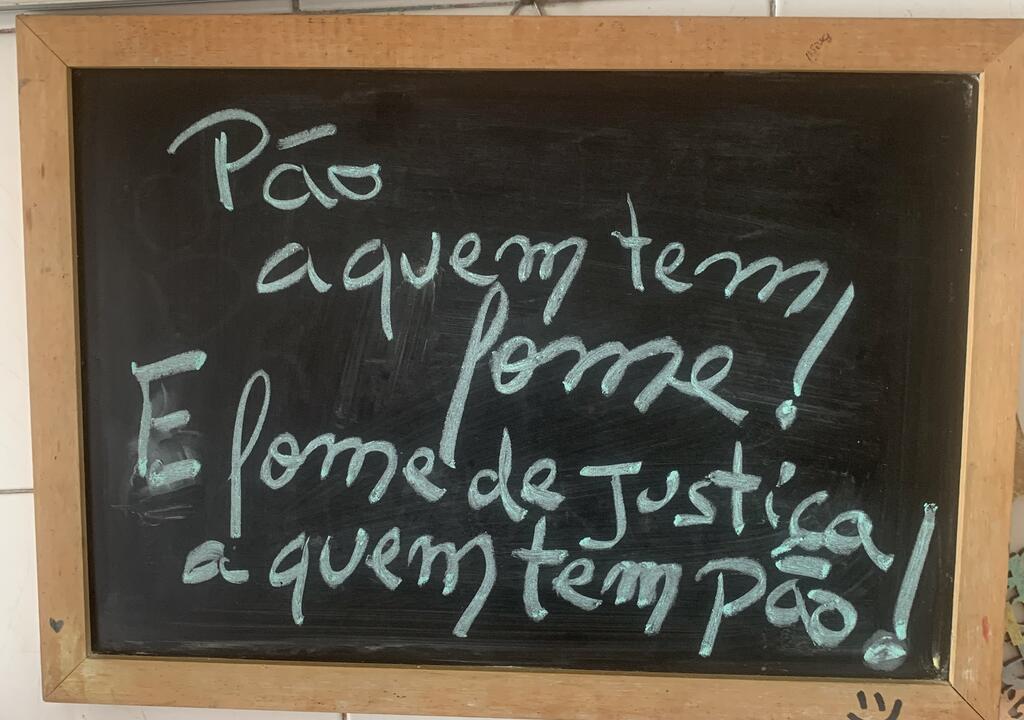 Pão
a quem tem
fome!
E fome de Justiça
a quem tem pão!